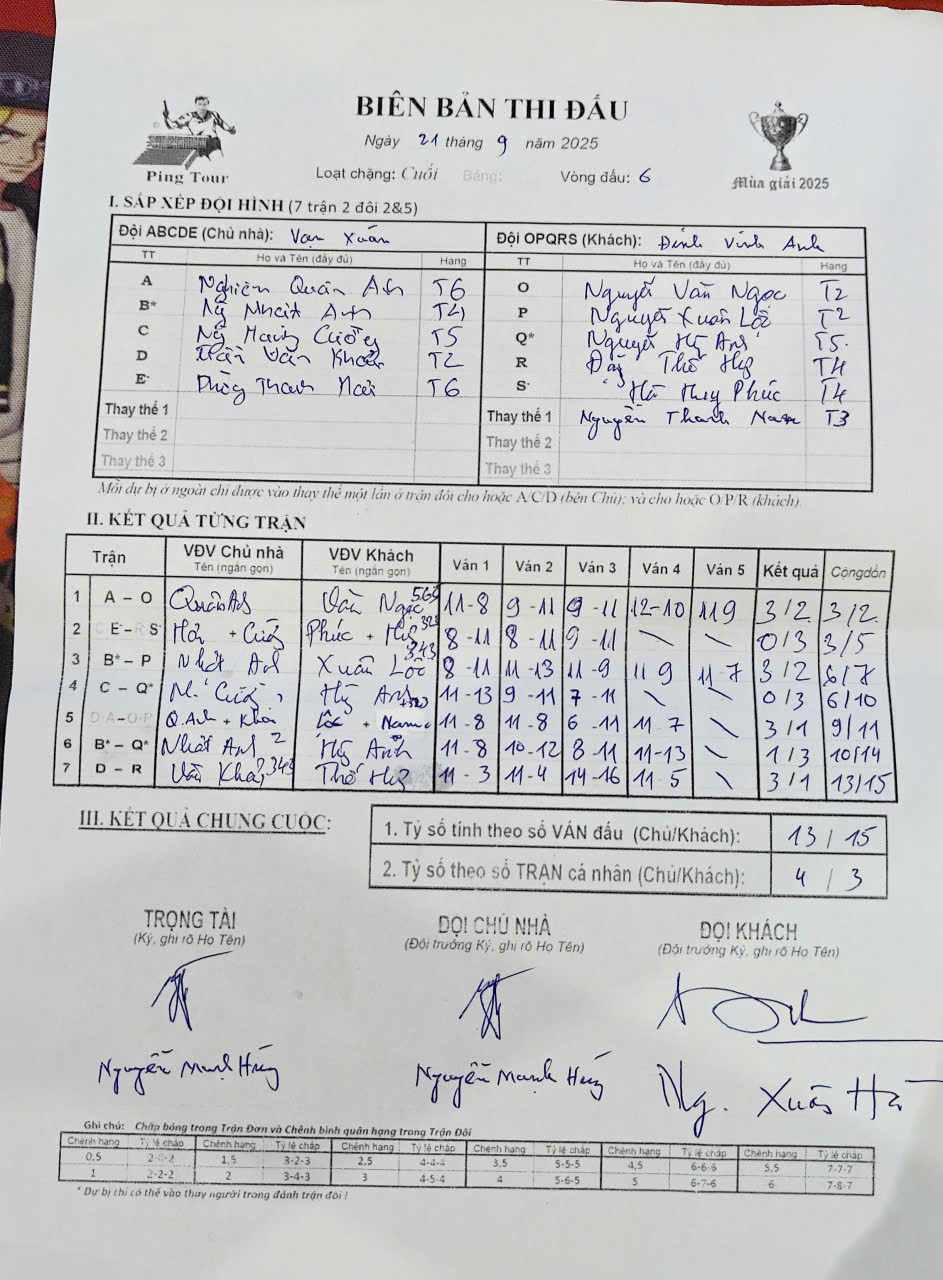 BIÊN BẢN THI ĐẤU
Ngày 21 tháng 9 năm 2025
Ping Tour
Loạt chặng: Cuối Bảng: Vòng đấu: 6
Mùa giải 2025
I. SẮP XẾP ĐỘI HÌNH (7 trận 2 đôi 2&5)
Đội ABCDE (Chủ nhà): Vạn Xuân Đội OPQRS (Khách): Đinh Vinh Anh
TT Họ và Tên (đầy đủ) Hạng TT Họ và Tên (đầy đủ) Hạng
A Nghiêm Quân Anh T6 O Nguyễn Văn Ngọc T2
B* Ng Nhật Anh T4 P Nguyễn Xuân Lộc T2
C Ng Mạnh Cường T5 Q* Nguyễn Anh T5
D Trần Văn Khải T2 R Thế T4
E* Thanh T6 S* Hà Huy Phúc T4
Thay thế 1 Thay thế 1 Nguyễn Thanh Nam T3
Thay thế 2 Thay thế 2
Thay thế 3 Thay thế 3
Mỗi dự bị ở ngoài chỉ được vào thay thế một lần ở trận đôi cho hoặc A/C/D (bên Chủ); và cho hoặc O/P/R (khách).
II. KẾT QUẢ TỪNG TRẬN
Trận VĐV Chủ nhà Tên (ngắn gọn) VĐV Khách Tên (ngắn gọn) Ván 1 Ván 2 Ván 3 Ván 4 Ván 5 Kết quả Cộng dồn
1 A – O Quân Anh Văn Ngọc 11-8 9-11 9-11 12-10 11 9 3/2 3/2
2 E* – R S* + Cường Phúc + 323 8-11 8-11 9-11 \ \ 0/3 3/5
3 B* – P Nhật Anh Xuân Lộc 343 8-11 11-13 11-9 11 9 11-7 3/2 6/7
4 C – Q* M. Cường Anh 11-13 9-11 7-11 \ \ 0/3 6/10
5 D A – O P Q. Anh + Khải Lộc + Nam 11-8 11-8 6-11 11-7 \ 3/1 9/11
6 B* – Q* Nhật Anh 2 Anh 11-8 10-12 8-11 11-13 \ 1/3 10/14
7 D – R Văn Khải 343 Thế 11-3 11-4 14-16 11-5 \ 3/1 13/15
III. KẾT QUẢ CHUNG CUỘC:
1. Tỷ số tính theo số VÁN đấu (Chủ/Khách): 13 / 15
2. Tỷ số theo số TRẬN cá nhân (Chủ/Khách): 4 / 3
TRỌNG TÀI ĐỘI CHỦ NHÀ ĐỘI KHÁCH
(Ký, ghi rõ Họ Tên) (Đội trưởng Ký, ghi rõ Họ Tên) (Đội trưởng Ký, ghi rõ Họ Tên)
Nguyễn Mạnh Hùng Nguyễn Mạnh Hùng Ng. Xuân Hà
Ghi chú: Chấp bóng trong Trận Đơn và Chênh bình quân hạng trong Trận Đôi
Chênh hạng Tỷ lệ chấp Chênh hạng Tỷ lệ chấp Chênh hạng Tỷ lệ chấp Chênh hạng Tỷ lệ chấp Chênh hạng Tỷ lệ chấp Chênh hạng Tỷ lệ chấp
0,5 2-0-2 1,5 3-2-3 2,5 4-4-4 3,5 5-5-5 4,5 6-6-6 5,5 7-7-7
1 2-2-2 2 3-4-3 3 4-5-4 4 5-6-5 5 6-7-6 6 7-8-7
* Dự bị thì có thể vào thay người trong đánh trận đôi !